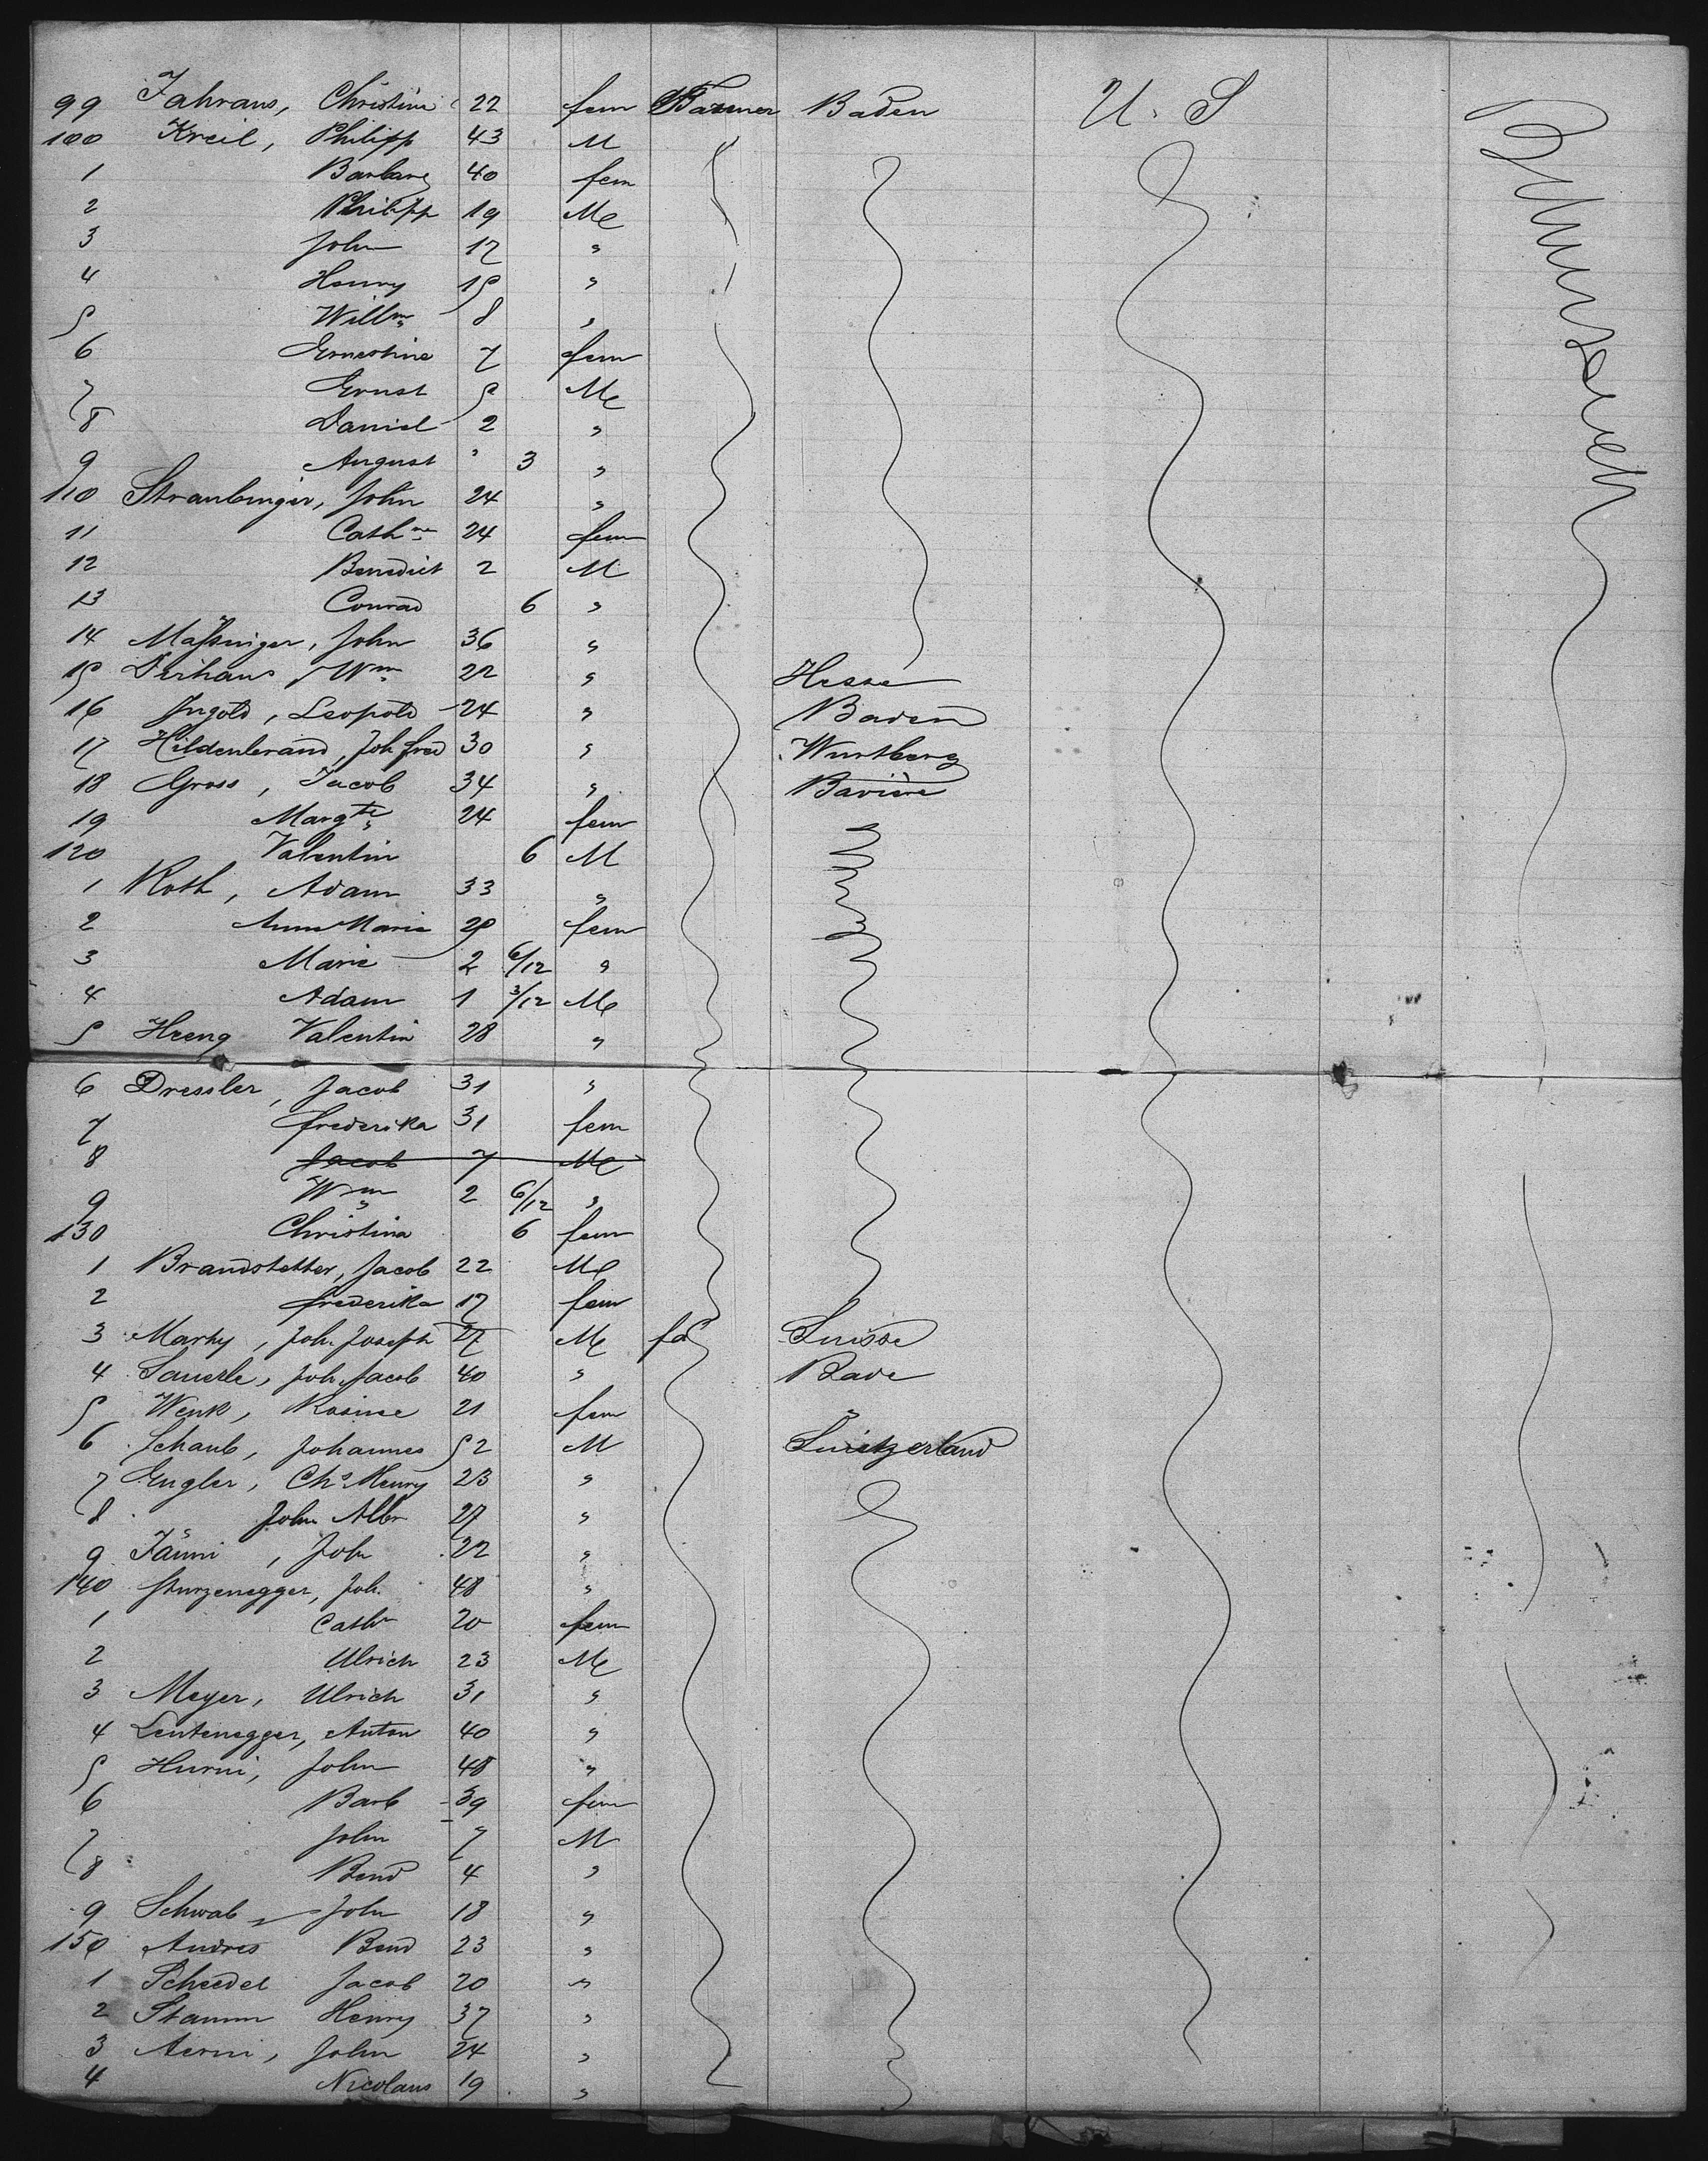 99 Jahraus, Christine 22 fem Farmer Baden U. S
100 Kreil, Philipp 43 M
1 Barbara 40 fem
2 Philipp 19 M
3 John 17 "
4 Henry 15 "
5 Willm 8 "
6 Ernestine 7 fem
7 Ernst 5 M
8 Daniel 2 "
9 August " 3 "
110 Straubinger, John 24 "
11 Cathne 24 fem
12 Benedict 2 M
13 Conrad 6 "
14 Mässinger, John 36 "
15 Derhaus, Wm 22 " Hesse
16 Ingold, Leopold 24 " Baden
17 Hildenbrand, Joh fred 30 " Wurtberg
18 Gross, Jacob 34 " Bavière
19 Margte 24 fem
120 Valentin 6 M
1 Roth, Adam 33 "
2 Anna Maria 25 fem
3 Marie 2 6/12 "
4 Adam 1 3/12 M
5 Hreng Valentin 28 "
6 Dressler, Jacob 31 "
7 frederika 31 fem
8 Jacob 7 M
9 Wm 2 6/12 "
130 Christina 6 fem
1 Brandstetter, Jacob 22 M
2 frederika 17 fem
3 Marty, Joh. Joseph 27 M Suisse
4 Sauerle, Joh. Jacob 40 " Bade
5 Wenk, Rosine 21 fem "
6 Schaub, Johannes 52 M Suitzerland
7 Engler, Chs Henry 23 "
8 John Albr 27 "
9 Jänni, Joh 22 "
140 Sturzenegger, Joh. 48 "
1 Cathr 20 fem
2 Ulrich 23 M
3 Meyer, Ulrich 31 "
4 Leutenegger, Anton 40 "
5 Hurni, John 48 "
6 Barb 39 fem
7 John 7 M
8 Bend 4 "
9 Schwab John 18 "
150 Andres Bend 23 "
1 Scheedel Jacob 20 "
2 Stamm Henry 37 "
3 Aerni, John 24 "
4 Nicolaus 19 "